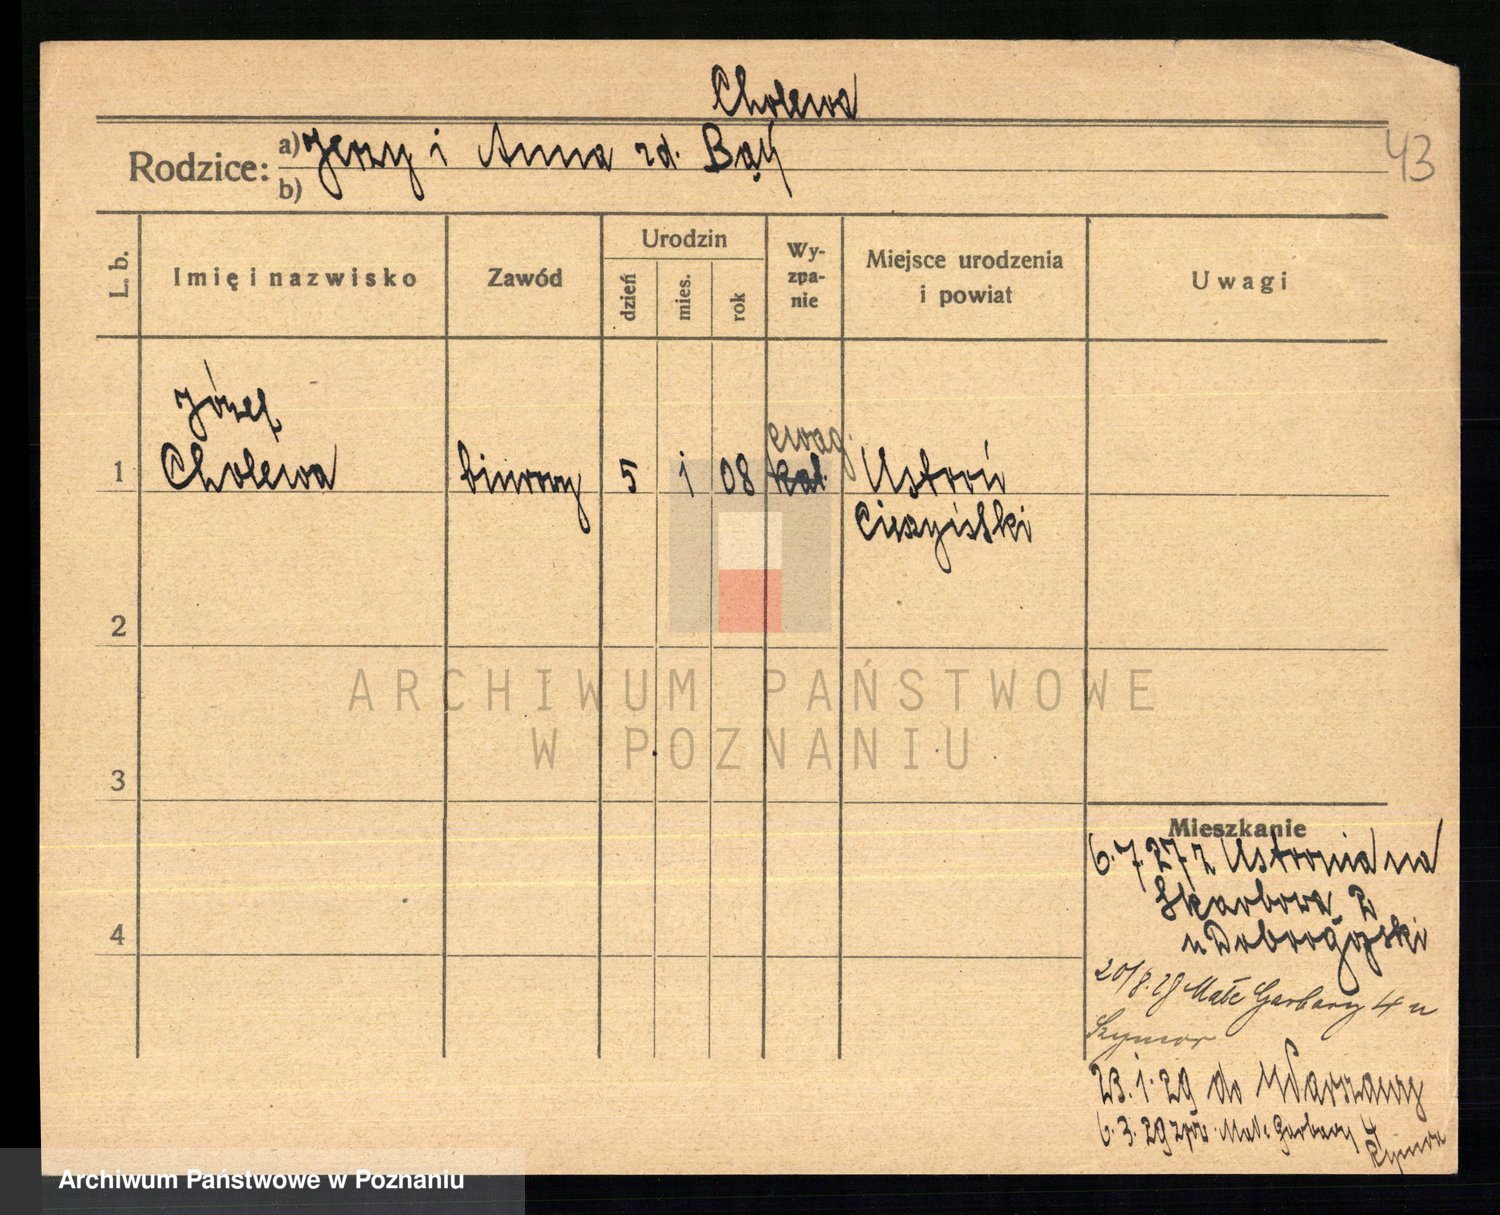 Cholewa
Rodzice: a) Jerzy i Anna zd. Bąk
b)
43
L. b.
Imię i nazwisko
Zawód
Urodzin
dzień
mies.
rok
Wy-
zna-
nie
Miejsce urodzenia
i powiat
Uwagi
Józef
ewag.
1 Cholewa biurowy 5 1 08 kat. Ustroń
Cieszyński
2
3
4
ARCHIWUM PAŃSTWOWE
W POZNANIU
Mieszkanie
6.7.27 z Ustronia na
Skarbowa 2
u Dobrogojski
20/8.28 Małe Garbary 4 u
Szymor
23.1.29 do Warszawy
6.3.29 zpow. Małe Garbary 4
Archiwum Państwowe w Poznaniu